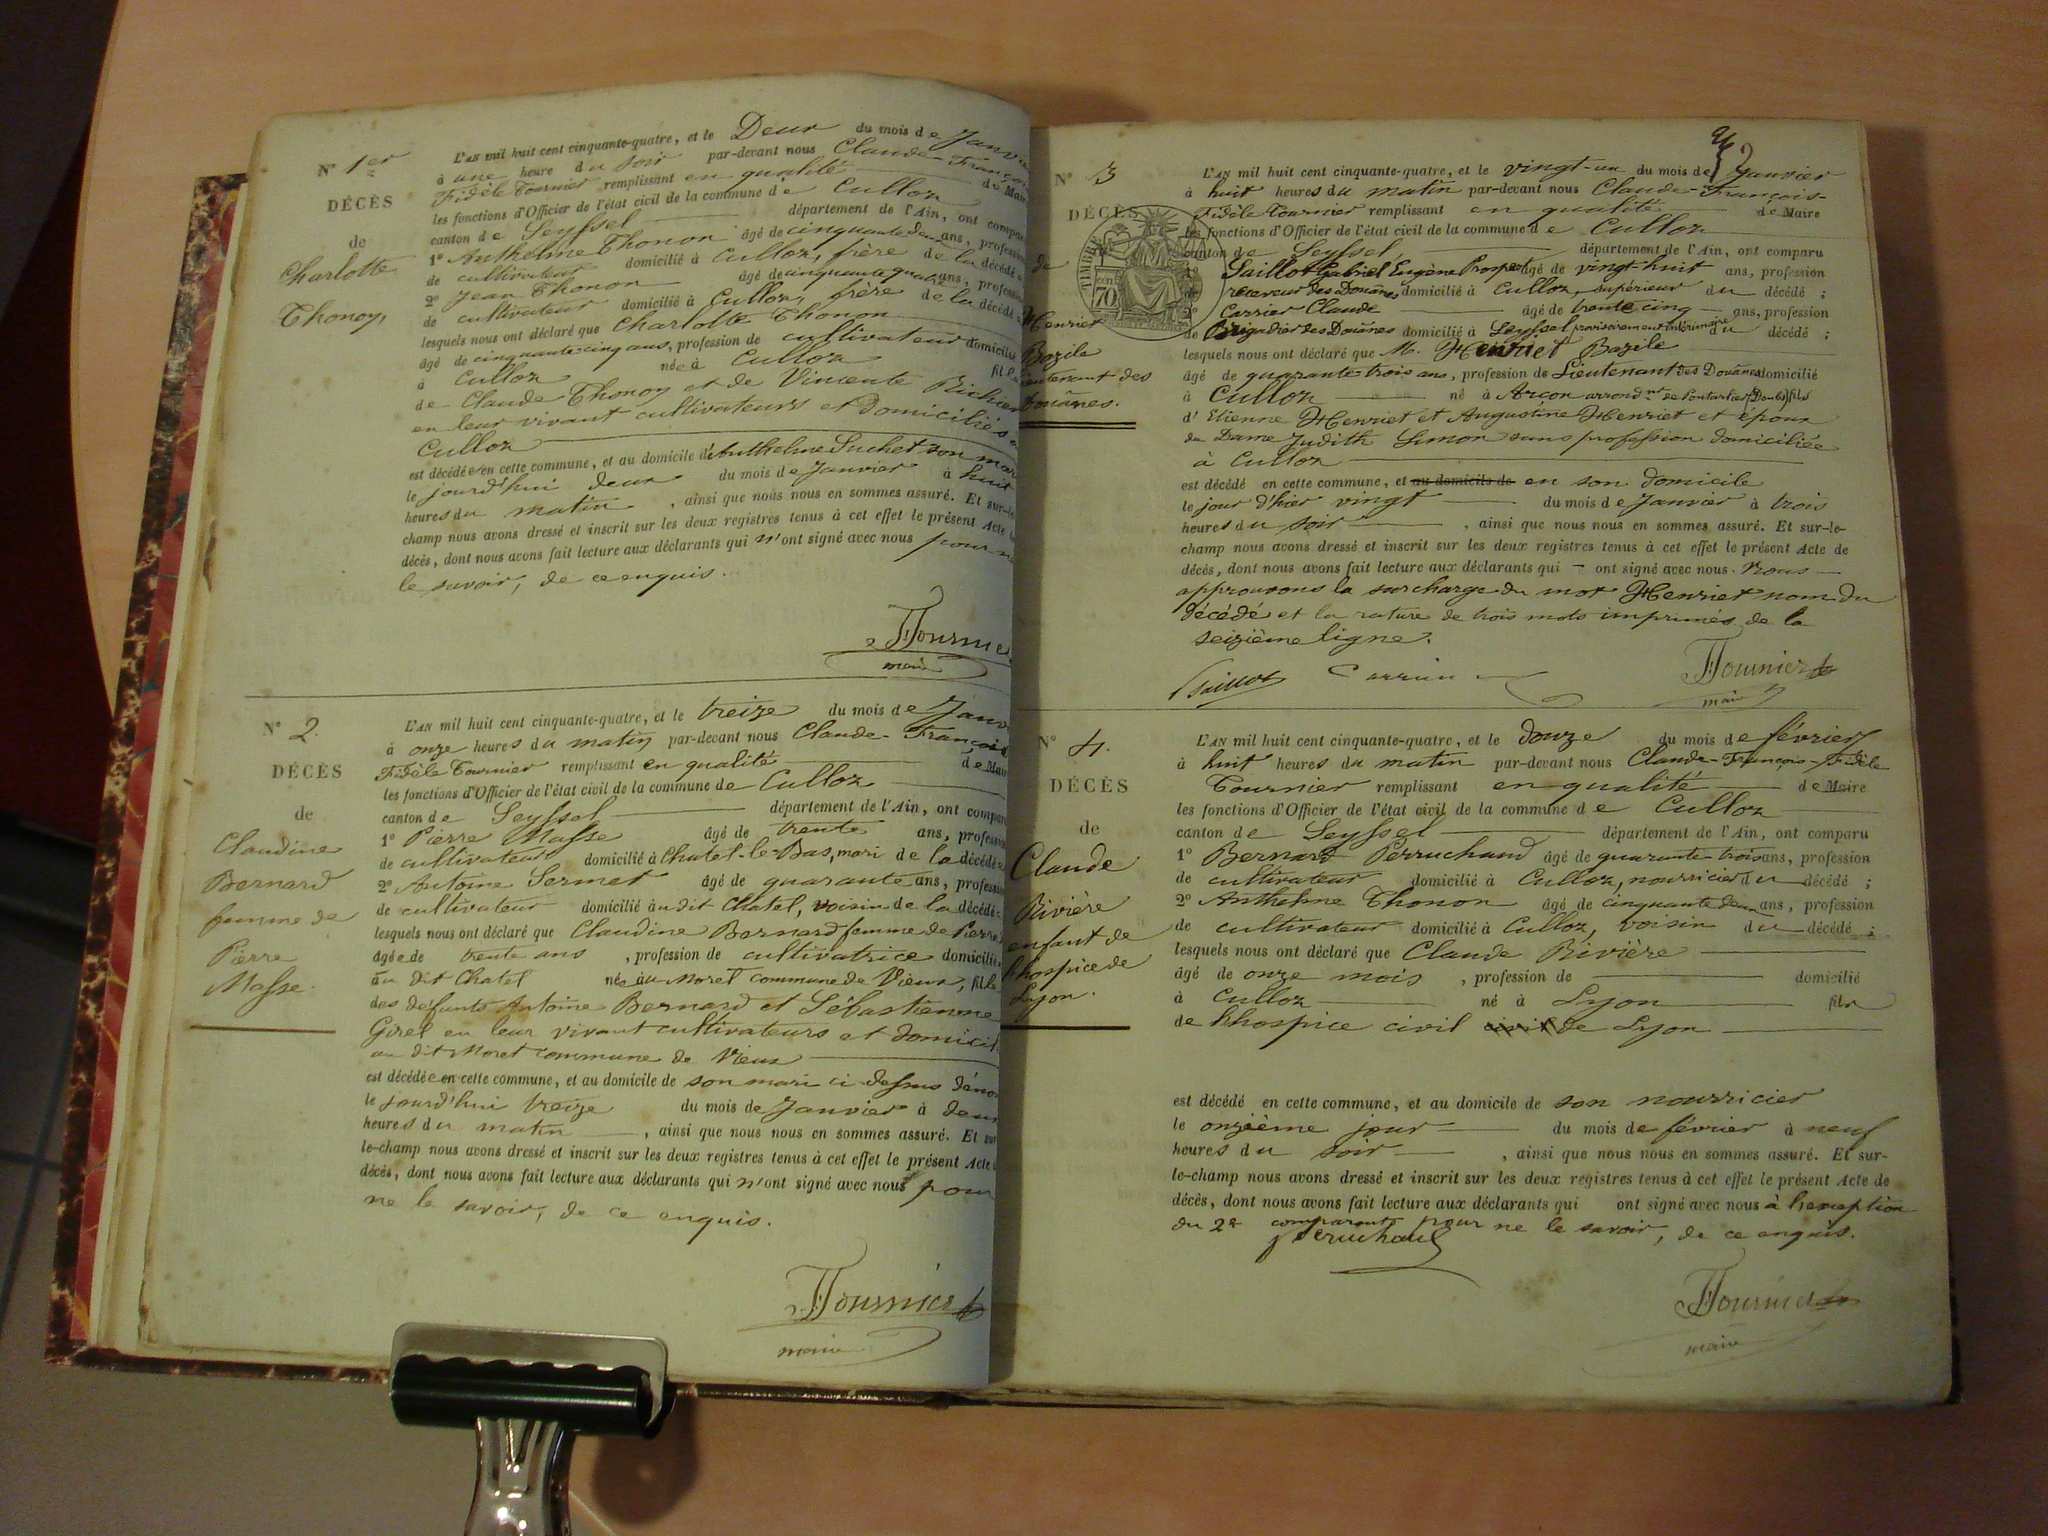 N° 1er
DÉCÈS
de
Charlotte
Thonon
L'AN mil huit cent cinquante-quatre, et le Deux du mois de Janvier
à une heure du soir par-devant nous Claude-François
Fidèle Tournier remplissant en qualité de Maire
les fonctions d'Officier de l'état civil de la commune de Culloz
canton de Seyssel département de l'Ain, ont comparu
1° Anthelme Thonon âgé de cinquante deux ans, profession
de cultivateur domicilié à Culloz, frère de la décédée
2° Jean Thonon âgé de cinquante quatre ans, profession
de cultivateur domicilié à Culloz, frère de la décédée
lesquels nous ont déclaré que Charlotte Thonon
âgé de cinquante-cinq ans, profession de cultivateur domicilié
à Culloz née à Culloz fille
de Claude Thonon et de Vincente Richier
en leur vivant cultivateurs et domiciliés à
Culloz
est décédée en cette commune, et au domicile d'Anthelme Suchet son mari
le jourd'hui deux du mois de Janvier à huit
heures du matin, ainsi que nous nous en sommes assuré. Et sur-le-
champ nous avons dressé et inscrit sur les deux registres tenus à cet effet le présent Acte
décès, dont nous avons fait lecture aux déclarants qui n'ont signé avec nous pour ne
le savoir, de ce enquis.
Tournier
maire
N° 2.
DÉCÈS
de
Claudine
Bernard
femme de
Pierre
Masse.
L'AN mil huit cent cinquante-quatre, et le treize du mois de Janvier
à onze heures du matin par-devant nous Claude-François
Fidèle Tournier remplissant en qualité de Maire
les fonctions d'Officier de l'état civil de la commune de Culloz
canton de Seyssel département de l'Ain, ont comparu
1° Pierre Masse âgé de trente ans, profession
de cultivateur domicilié à Chatel-le-Bas, mari de la décédée
2° Antoine Sermet âgé de quarante ans, profession
de cultivateur domicilié au dit Chatel, voisin de la décédée
lesquels nous ont déclaré que Claudine Bernard femme de Pierre
âgée de trente ans, profession de cultivatrice domicilié
au dit Chatel née au Moret commune de Vieux, fille
des défunts Antoine Bernard et Sébastienne
Girel en leur vivant cultivateurs et domicil
au dit Moret commune de Vieux
est décédée en cette commune, et au domicile de son mari ci-dessus dénom
le jourd'hui treize du mois de Janvier à deux
heures du matin, ainsi que nous nous en sommes assuré. Et sur
le-champ nous avons dressé et inscrit sur les deux registres tenus à cet effet le présent Acte
décès, dont nous avons fait lecture aux déclarants qui n'ont signé avec nous pour
ne le savoir, de ce enquis.
Tournier
maire
2
N° 3
DÉCÈS
de
TIMBRE
70
Henriet
Bazile
lieutenant des
Douanes.
L'AN mil huit cent cinquante-quatre, et le vingt-un du mois de Janvier
à huit heures du matin par-devant nous Claude-François-
Fidèle Tournier remplissant en qualité de Maire
les fonctions d'Officier de l'état civil de la commune de Culloz
canton de Seyssel département de l'Ain, ont comparu
1° Saillot Gabriel Eugène Prosper âgé de vingt-huit ans, profession
receveur des Douanes domicilié à Culloz, supérieur du décédé ;
2° Carrier Claude âgé de trente cinq ans, profession
de Brigadier des Douanes domicilié à Seyssel provisoirement intérimaire du décédé ;
lesquels nous ont déclaré que M. Henriet Bazile
âgé de quarante trois ans, profession de Lieutenant des Douanes domicilié
à Culloz né à Arcon arrond.nt de Pontarlier (Doubs) fils
d'Etienne Henriet et Augustine Henriet et époux
de Dame Judith Simon sans profession domiciliée
à Culloz
est décédé en cette commune, et au domicile de en son domicile
le jour d'hier vingt du mois de Janvier à trois
heures du soir, ainsi que nous nous en sommes assuré. Et sur-le-
champ nous avons dressé et inscrit sur les deux registres tenus à cet effet le présent Acte de
décès, dont nous avons fait lecture aux déclarants qui ont signé avec nous. Nous
approuvons la surcharge du mot Henriet nom du
décédé et la rature de trois mots imprimés de la
seizième ligne.
Saillot Carrier Tournier
maire
N° 4.
DÉCÈS
de
Claude
Rivière
enfant de
l'hospice de
Lyon.
L'AN mil huit cent cinquante-quatre, et le douze du mois de février
à huit heures du matin par-devant nous Claude-François-Fidèle
Tournier remplissant en qualité de Maire
les fonctions d'Officier de l'état civil de la commune de Culloz
canton de Seyssel département de l'Ain, ont comparu
1° Bernard Perruchaud âgé de quarante trois ans, profession
de cultivateur domicilié à Culloz, nourricier du décédé ;
2° Anthelme Thonon âgé de cinquante deux ans, profession
de cultivateur domicilié à Culloz, voisin du décédé ;
lesquels nous ont déclaré que Claude Rivière
âgé de onze mois, profession de domicilié
à Culloz né à Lyon fils
de l'hospice civil civil de Lyon
est décédé en cette commune, et au domicile de son nourricier
le onzième jour du mois de février à neuf
heures du soir, ainsi que nous nous en sommes assuré. Et sur-
le-champ nous avons dressé et inscrit sur les deux registres tenus à cet effet le présent Acte de
décès, dont nous avons fait lecture aux déclarants qui ont signé avec nous à l'exception
du 2e comparant pour ne le savoir, de ce enquis.
Peruchaud
Tournier
maire